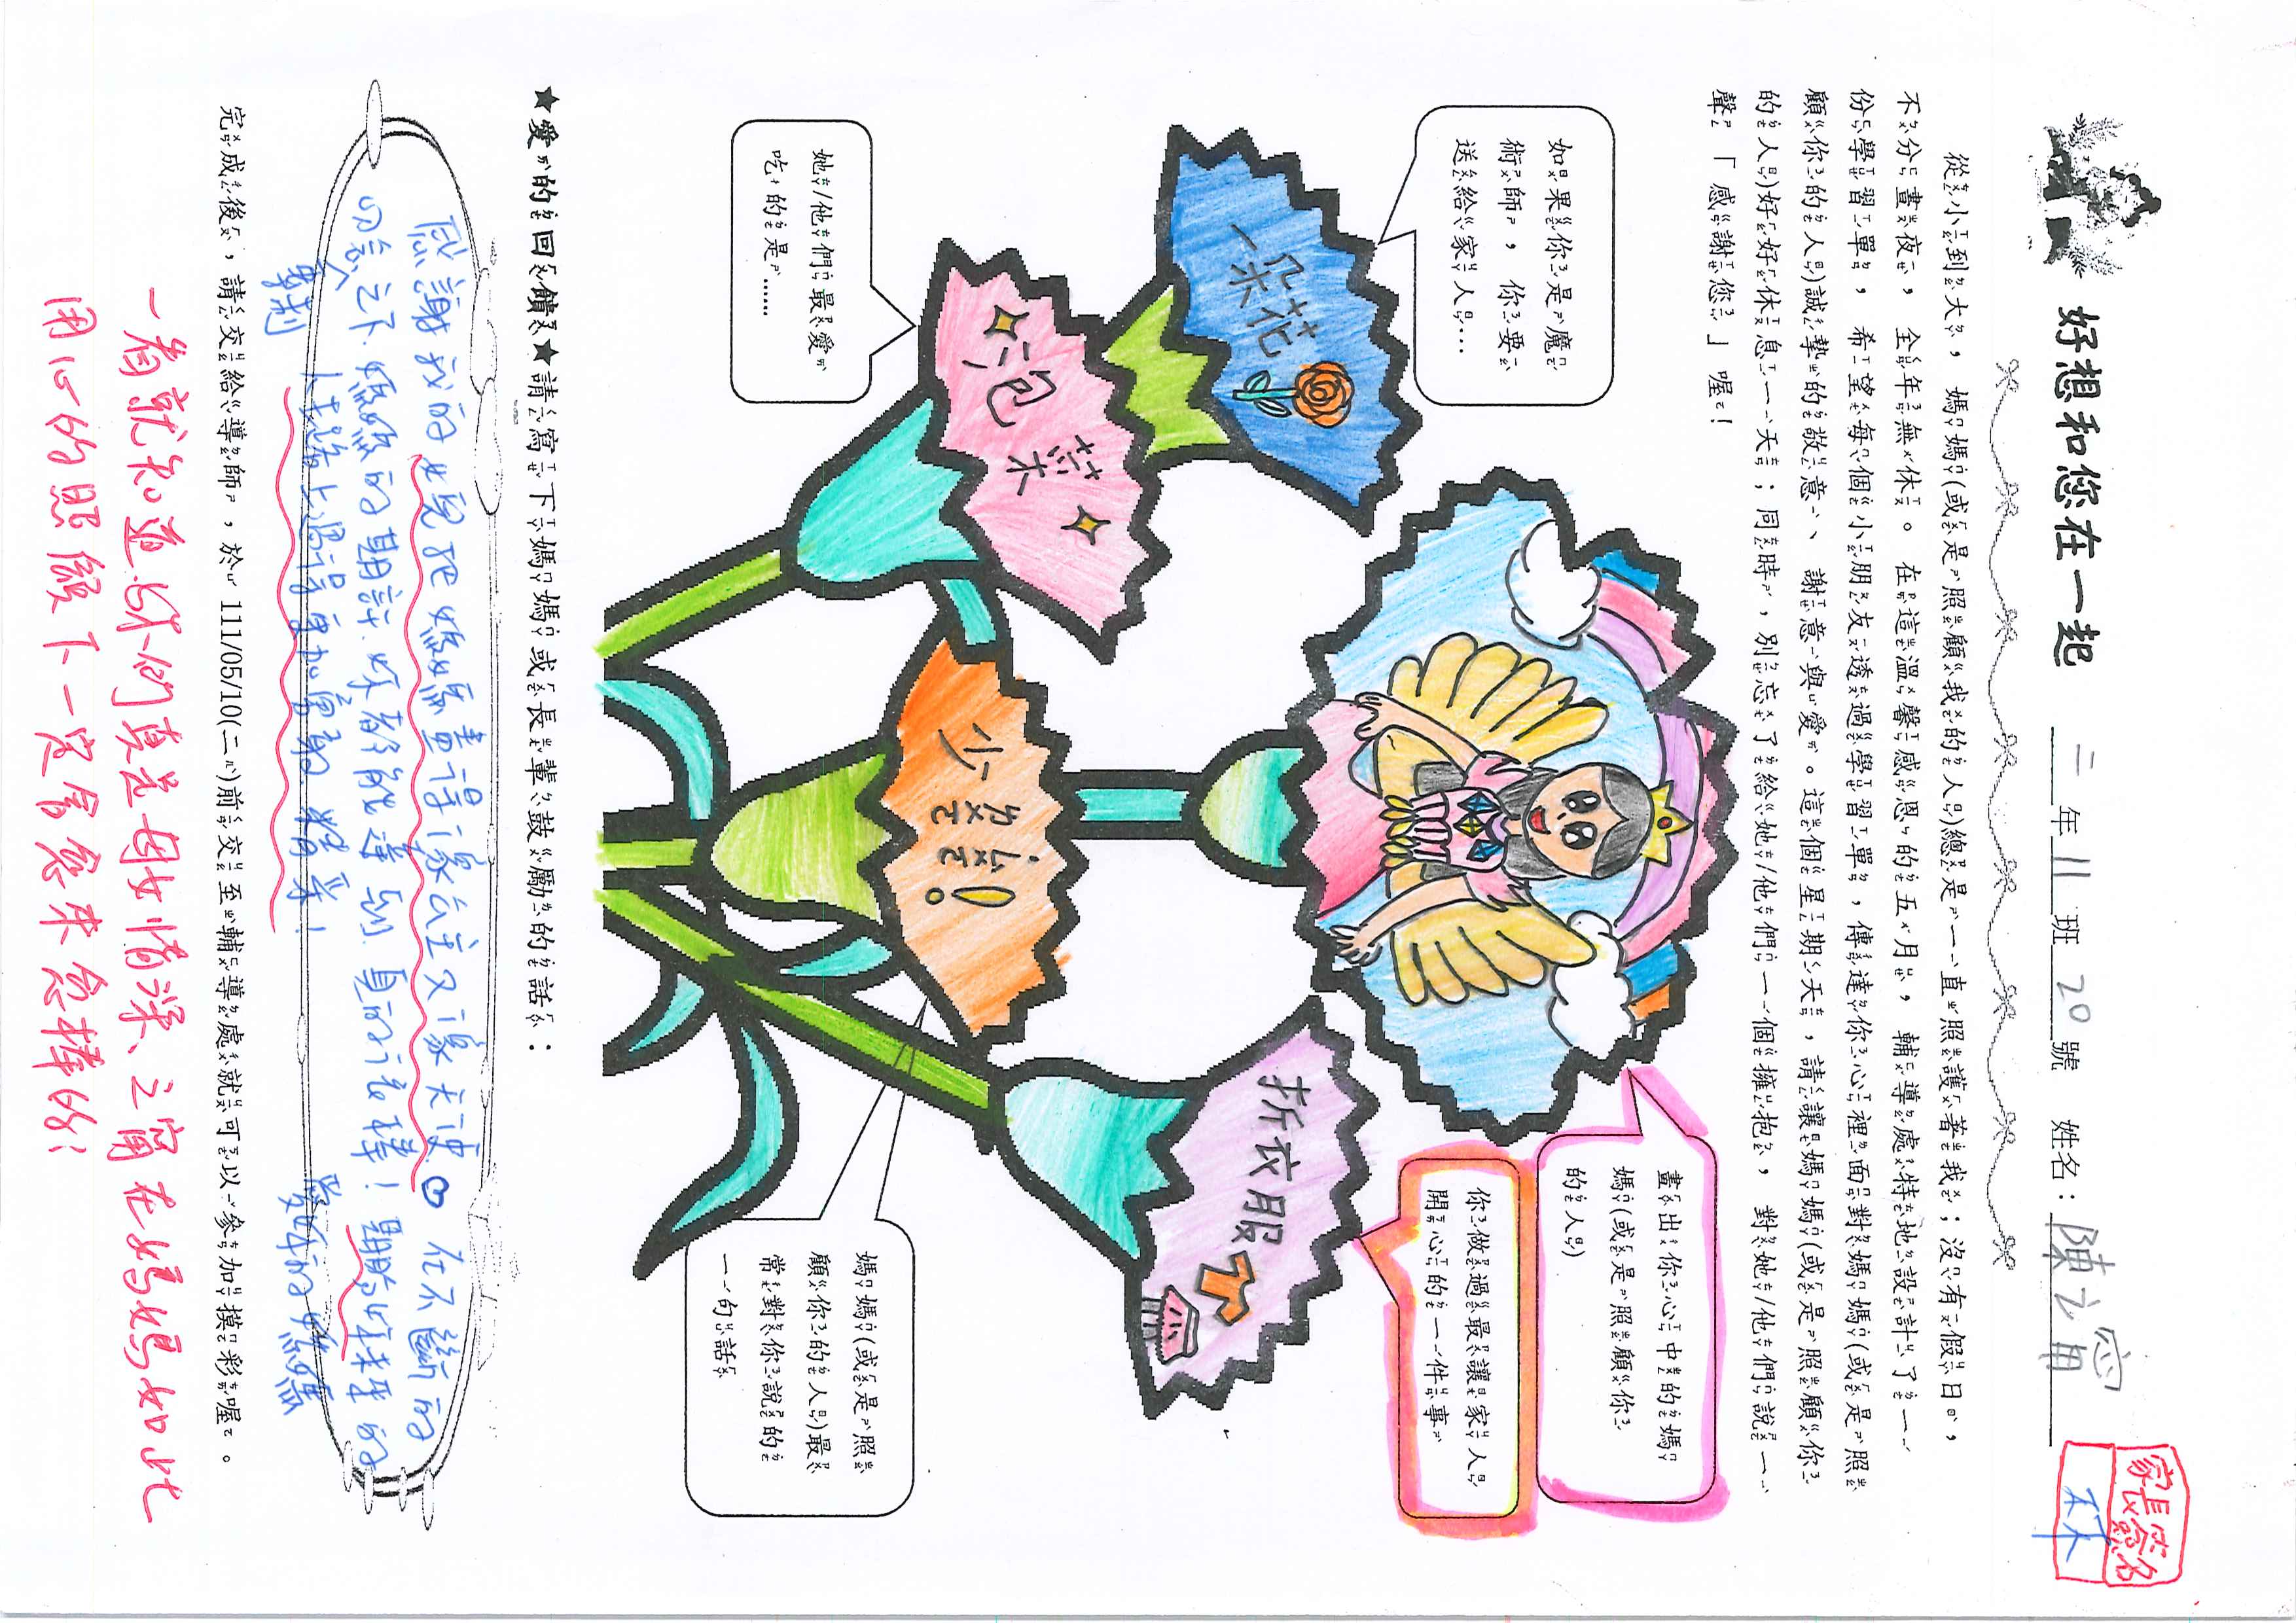 好想和您在一起 二年11班20號 姓名：陳之甯
家長簽名
林
從小到大，媽媽(或是照顧我的人)總是一直照護著我；沒有假日，
不分晝夜，全年無休。在這溫馨感恩的五月，輔導處特地設計了一
份學習單，希望每個小朋友透過學習單，傳達你心裡面對媽媽(或是照
顧你的人)誠摯的敬意、謝意與愛。這個星期天，請讓媽媽(或是照顧你
的人)好好休息一天；同時，別忘了給她/他們一個擁抱，對她/他們說一
聲「感謝您」喔！
如果你是魔
術師，你要
送給家人…
一朵花
畫出你心中的媽
媽(或是照顧你
的人)
你做過最讓家人
開心的一件事
折衣服
她/他們最愛
吃的是……
泡菜
少ㄌㄛ ㄙㄛ！
媽媽(或是照
顧你的人)最
常對你說的
一句話
★愛的回饋★請寫下媽媽或長輩鼓勵的話：
感謝我的女兒把媽媽畫得像公主又像天使♡ 在不斷的
之下媽媽的期許妳都能達到 真的很棒！願妳未來的
人生路上過得更加豐富 精采！
愛妳的媽媽
完成後，請交給導師，於 111/05/10(二)前交至輔導處就可以參加摸彩喔。
一看就知道你們真是母女情深、之甯在媽媽如此
用心的照顧下一定會愈來愈棒的！